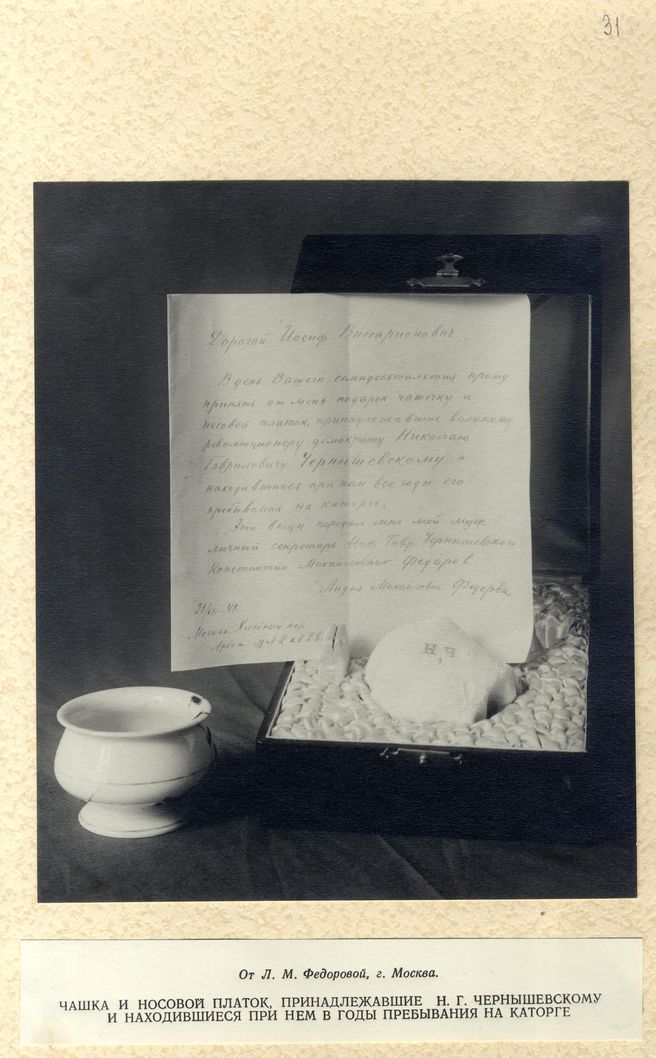 31
Дорогой Иосиф Виссарионович
В день Вашего семидесятилетия прошу
принять от меня подарок чашечку и
носовой платок, принадлежавшие великому
революционеру демократу Николаю
Гавриловичу Чернышевскому и
находившиеся при нем все годы его
пребывания на каторге.
Эти вещи передал мне мой муж
личный секретарь Ник. Гавр. Чернышевского
Константин Михайлович Федоров
Лидия Михайловна Федорова
Москва. пер.
Арбат д 2 кв 28
Н.Ч.
От Л. М. Федоровой, г. Москва.
ЧАШКА И НОСОВОЙ ПЛАТОК, ПРИНАДЛЕЖАВШИЕ Н. Г. ЧЕРНЫШЕВСКОМУ
И НАХОДИВШИЕСЯ ПРИ НЕМ В ГОДЫ ПРЕБЫВАНИЯ НА КАТОРГЕ